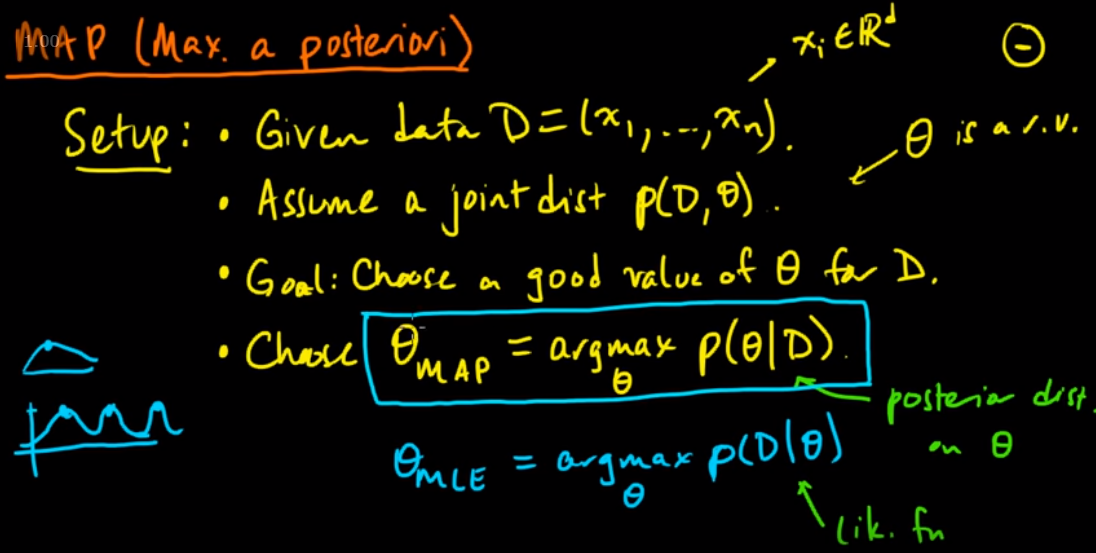 MAP (Max. a posteriori)
1.00
x_i ∈ ℝ^d
Θ
Setup: • Given data D = (x_1, ..., x_n).
θ is a r.v.
• Assume a joint dist p(D, θ).
• Goal: Choose a good value of θ for D.
• Choose θ_MAP = argmax_θ p(θ|D).
posterior dist.
on θ
θ_MLE = argmax_θ p(D|θ)
lik. fn